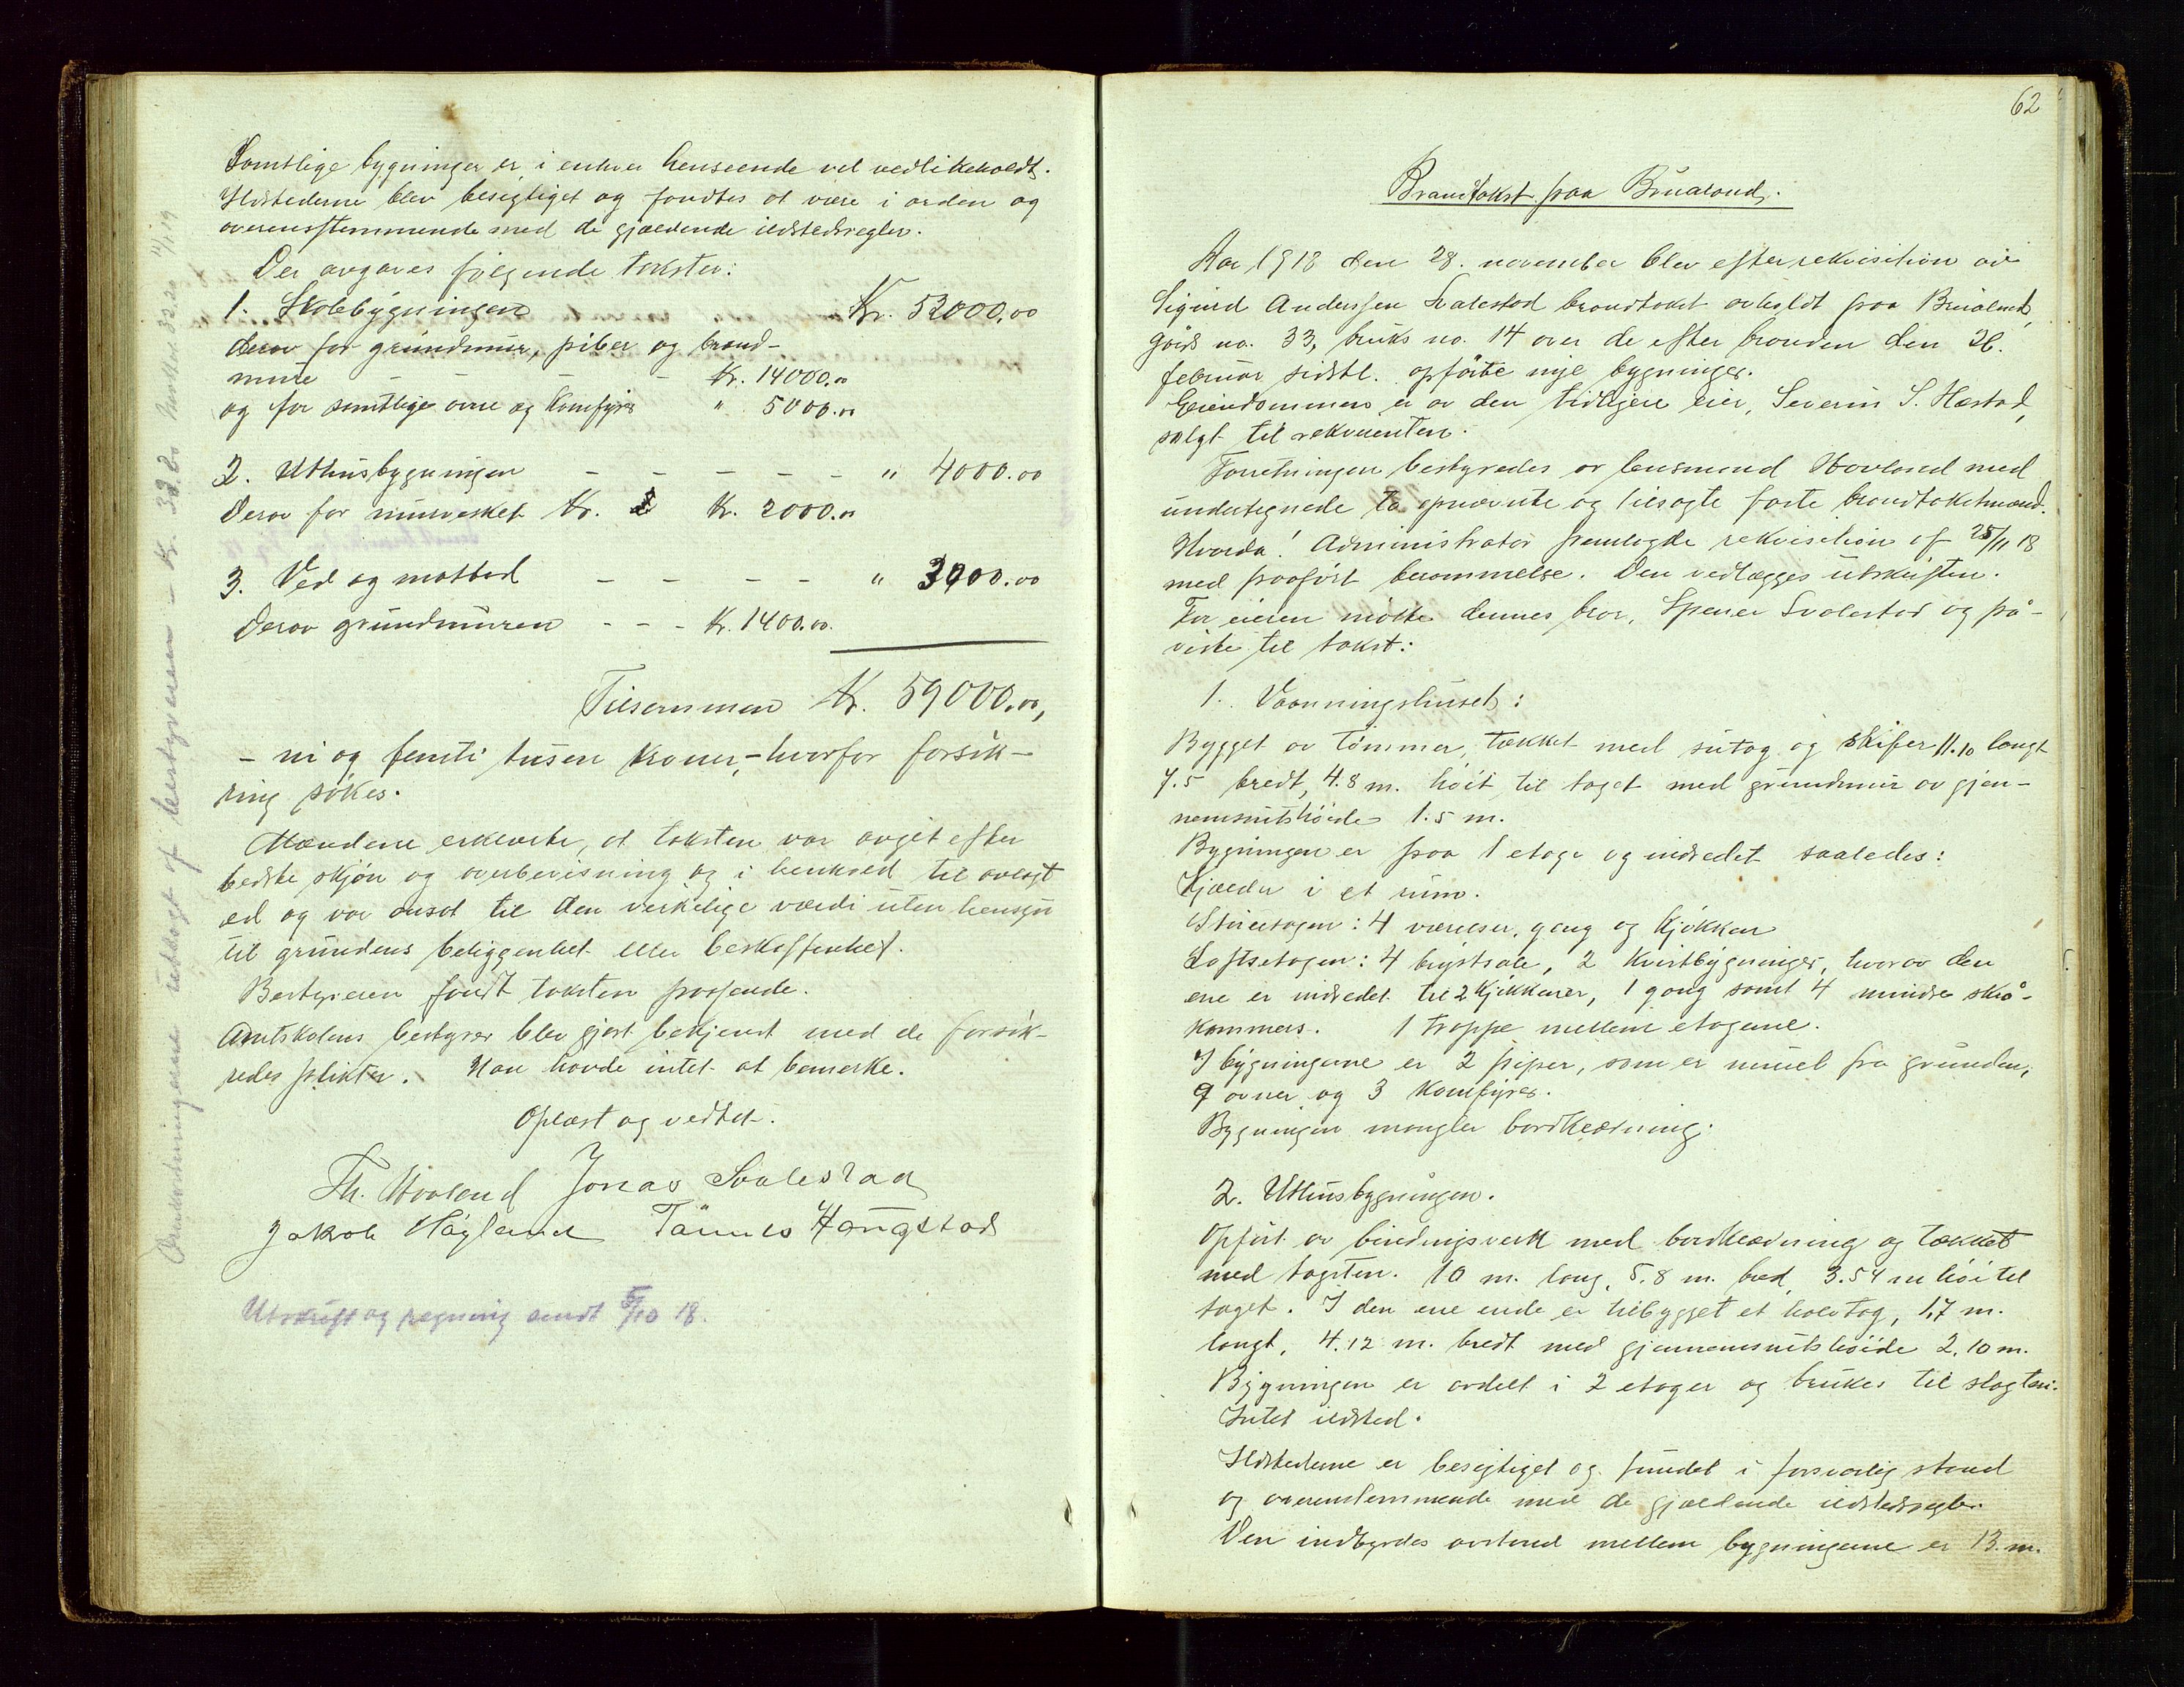 Samtlige bygninger er i enhver henseende vel vedlikeholdt.
Ildstederne blev besigtiget og fandtes at være i orden og
overensstemmende med de gjældende ildstedsregler.
Der avgaves følgende takster:
1. Skolebygningen Kr. 52000.00
derav for grundmur, piber og brand-
mure - - - - Kr. 14000.00
og for samtlige ovne og komfyrer " 5000.00
2. Uthusbygningen - - - - - " 4000.00
Derav for murverket Kr. Kr. 2000.00
3. Ved og matbod - - - - " 3000.00
Derav grundmuren - - - Kr. 1400.00.
Tilsammen Kr. 59000.00,
- ni og femti tusen kroner, - hvorfor forsik-
ring søkes.
Mændene erklærte, at taksten var avgit efter
bedste skjøn og overbevisning og i henhold til avlagt
ed og var ansat til den virkelige værdi uten hensyn
til grundens beliggenhet eller beskaffenhet.
Bestyreren fandt taksten passende.
Amtskolens bestyrer blev gjort bekjendt med de forsik-
redes plikter. Han havde intet at bemerke.
Oplæst og vedtat.
Th. Hovland Jonas Svalestad
Jakob Høyland Tønnes Haugstad
Utskrift og regning sendt 5/10 18.
Omkostningerne utlagt af bestyreren - Kr. 33.20 14/1 19
62
Brandtakst paa Brualand.
Aar 1918 den 28. november blev efter rekvisition av
Sigurd Anderssen Svalestad brandtakst avholdt paa Brualand,
gards no. 33, bruks no. 14 over de efter branden den 26.
februar sidstl. opførte nye bygninger.
Eiendommen er av den tidligere eier, Severin S. Hæstad,
solgt til rekvirenten.
Forretningen bestyredes av lensmand Hovland med
undertegnede to opnævnte og tilsagte faste brandtakstmænd.
Hvorda! Administrator fremlagde rekvisition af 25/11 18
med paaført berammelse. Den vedlægges utskriften.
For eieren møtte dennes bror, Spener Svalestad og på-
viste til takst:
1. Vaaningshuset:
Bygget av tømmer, tækket med sutag og skifer 11.10 langt
7.5 bredt, 4.8 m. høit til taget med grundmur av gjen-
nemsnitshøide 1.5 m.
Bygningen er paa 1 etage og indredet saaledes:
Kjælder i et rum.
Stueetagen: 4 værelser, gang og kjøkken
Loftsetagen: 4 brystsale, 2 kvistbygninger, hvorav den
ene er indredet til 2 kjøkkener, 1 gang samt 4 mindre skrå-
kammers. 1 trappe mellem etagene.
I bygningerne er 2 piper, som er muret fra grunden,
9 ovner og 3 komfyrer.
Bygningen mangler bordklædning.
2. Uthusbygningen.
Opført av bindingsverk med bordklædning og tækket
med tagsten. 10 m. lang, 5.8 m. bred, 3.54 m høi til
taget. I den ene ende er tilbygget et halvtag, 1,7 m.
langt, 4.12 m. bredt med gjennemsnitshøide 2.10 m.
Bygningen er avdelt i 2 etager og brukes til slagteri.
Intet ildsted.
Ildstederne er besigtiget og fundet i forsvarlig stand
og overenstemmende med de gjældende ildstedsregler.
Den indbyrdes avstand mellem bygningerne er 13. m.